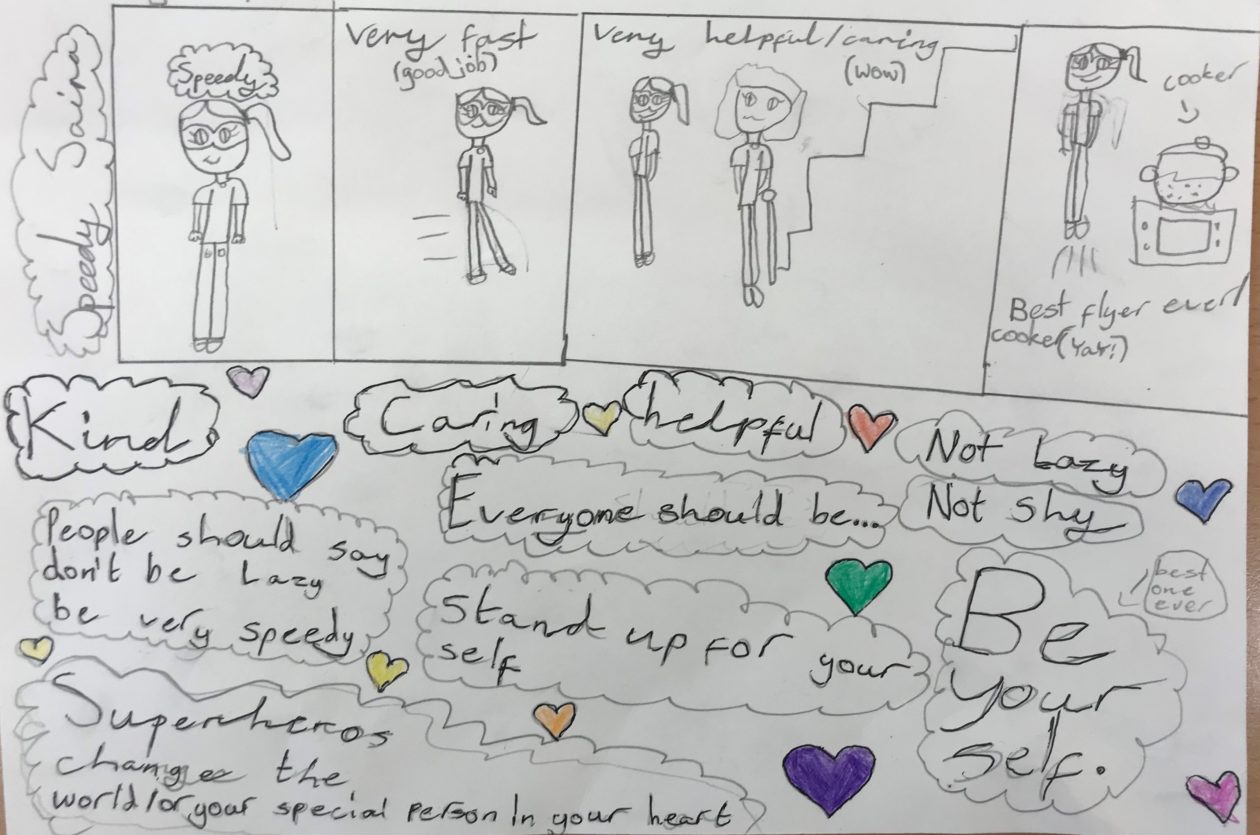 Speedy Saina
Speedy
Very fast
(good job)
Very helpful/caring
(wow)
cooker
Best flyer ever!
cooker (Yay!)
Kind
Caring
helpful
Not Lazy
Not shy
Everyone should be...
People should say
don't be Lazy
be very speedy
Stand up for your
self
best
one
ever
Be
Your
self.
Superheros
changes the
world/or your special person in your heart